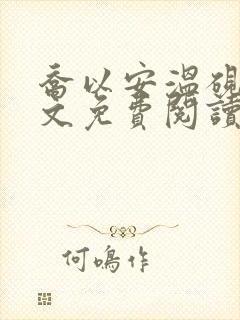 喬以安溫硯
文免費閱讀
何鳴作